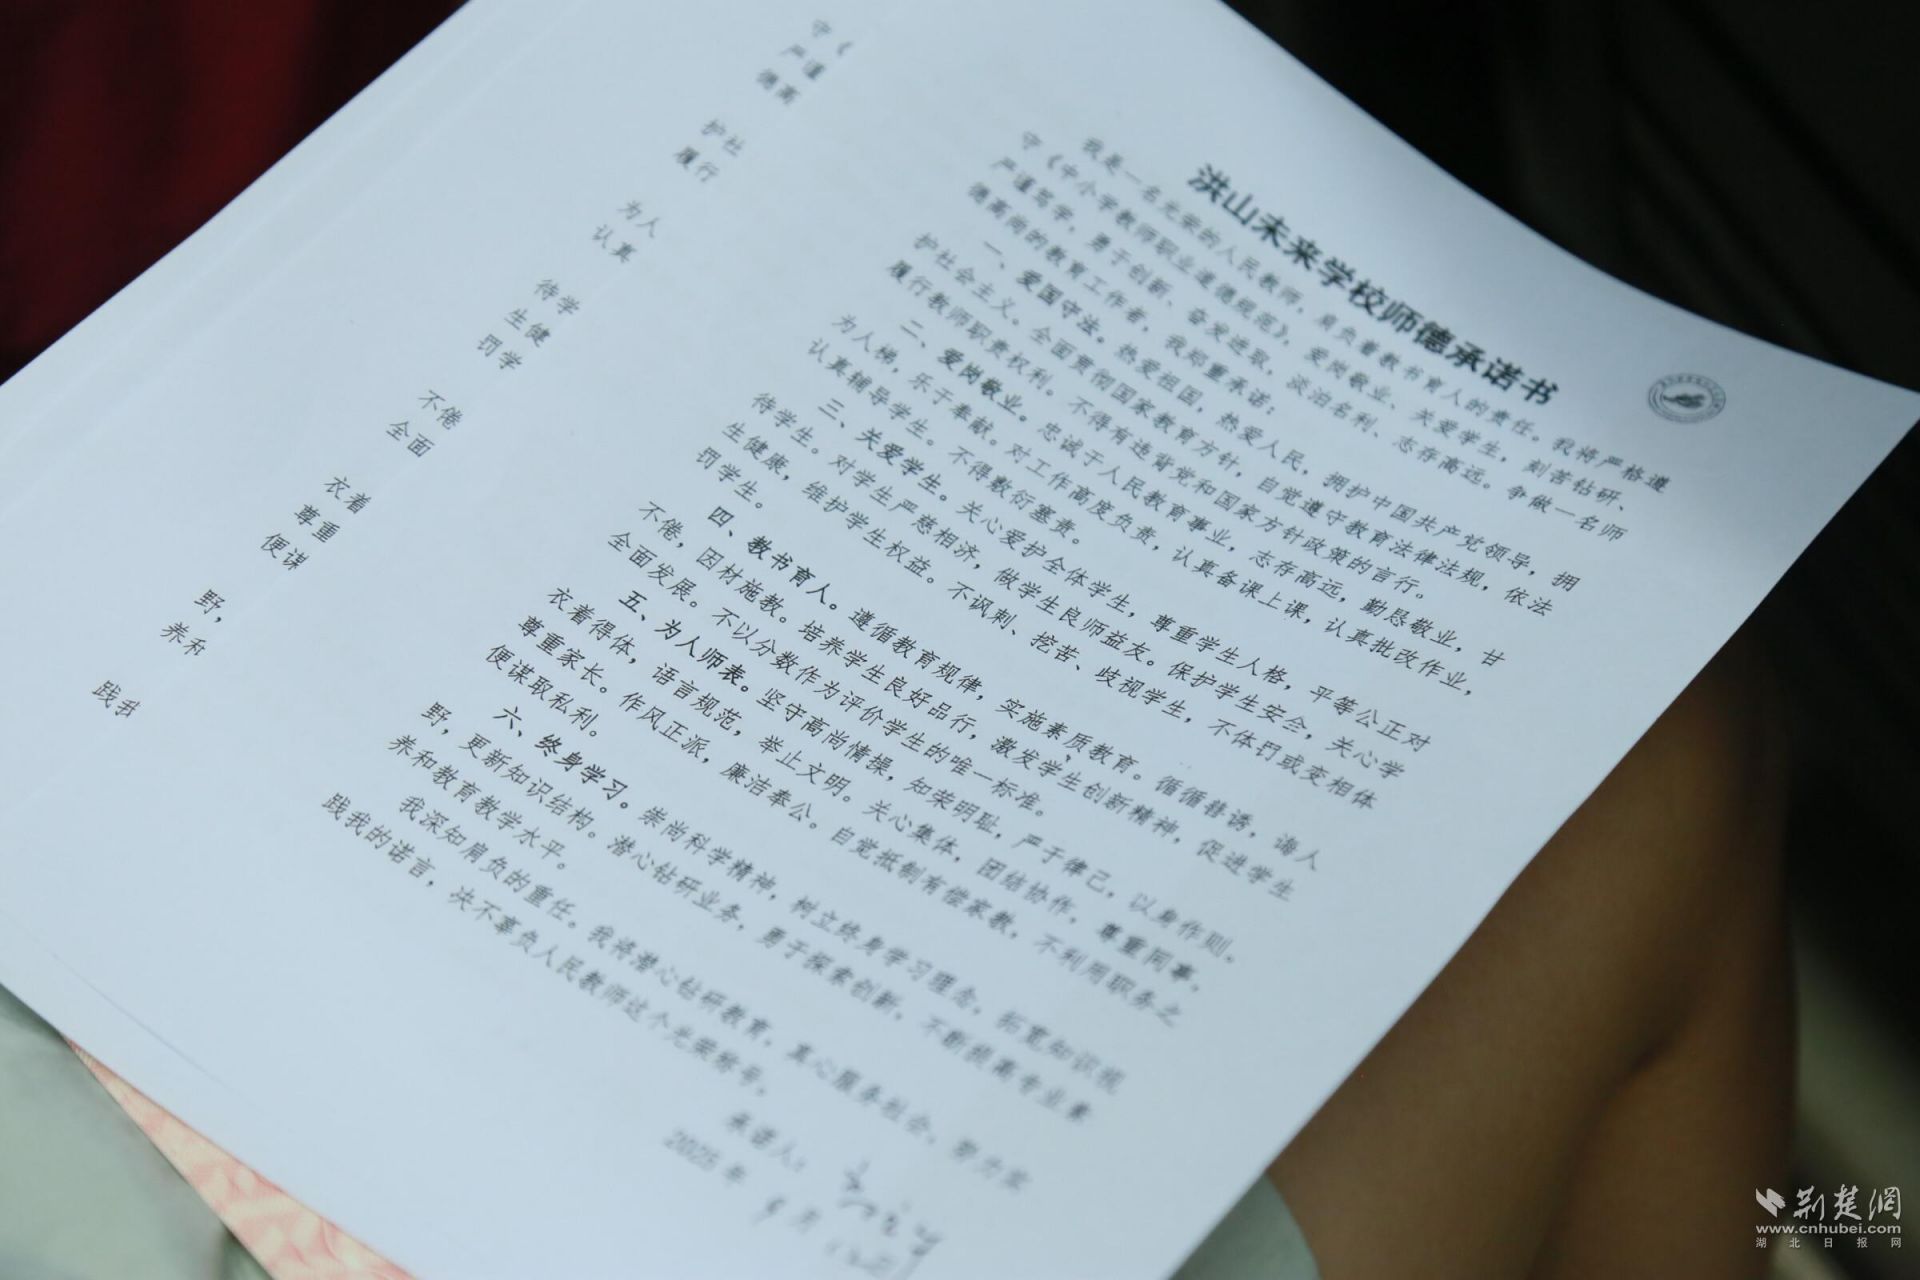 洪山未来学校师德承诺书
我是一名光荣的人民教师，肩负着教书育人的责任。我将严格遵
守《中小学教师职业道德规范》，爱岗敬业、关爱学生，刻苦钻研、
严谨笃学，勇于创新、奋发进取，淡泊名利、志存高远。争做一名师
德高尚的教育工作者，我郑重承诺：
一、爱国守法。热爱祖国，热爱人民，拥护中国共产党领导，拥
护社会主义。全面贯彻国家教育方针，自觉遵守教育法律法规，依法
履行教师职责权利。不得有违背党和国家方针政策的言行。
二、爱岗敬业。忠诚于人民教育事业，志存高远，勤恳敬业，甘
为人梯，乐于奉献。对工作高度负责，认真备课上课，认真批改作业，
认真辅导学生。不得敷衍塞责。
三、关爱学生。关心爱护全体学生，尊重学生人格，平等公正对
待学生。对学生严慈相济，做学生良师益友。保护学生安全，关心学
生健康，维护学生权益。不讽刺、挖苦、歧视学生，不体罚或变相体
罚学生。
四、教书育人。遵循教育规律，实施素质教育。循循善诱，诲人
不倦，因材施教。培养学生良好品行，激发学生创新精神，促进学生
全面发展。不以分数作为评价学生的唯一标准。
五、为人师表。坚守高尚情操，知荣明耻，严于律己，以身作则。
衣着得体，语言规范，举止文明。关心集体，团结协作，尊重同事，
尊重家长。作风正派，廉洁奉公。自觉抵制有偿家教，不利用职务之
便谋取私利。
六、终身学习。崇尚科学精神，树立终身学习理念，拓宽知识视
野，更新知识结构。潜心钻研业务，勇于探索创新，不断提高专业素
养和教育教学水平。
我深知肩负的重任。我将潜心钻研教育，真心服务社会，努力实
践我的诺言，决不辜负人民教师这个光荣称号。
承诺人：
2025 年 月
守《
严谨
德高
护社
履行
为人
认真
待学
生健
罚学
不倦
全面
衣着
尊重
便谋
野，
养和
践我
荆楚网
www.cnhubei.com
湖北日报网